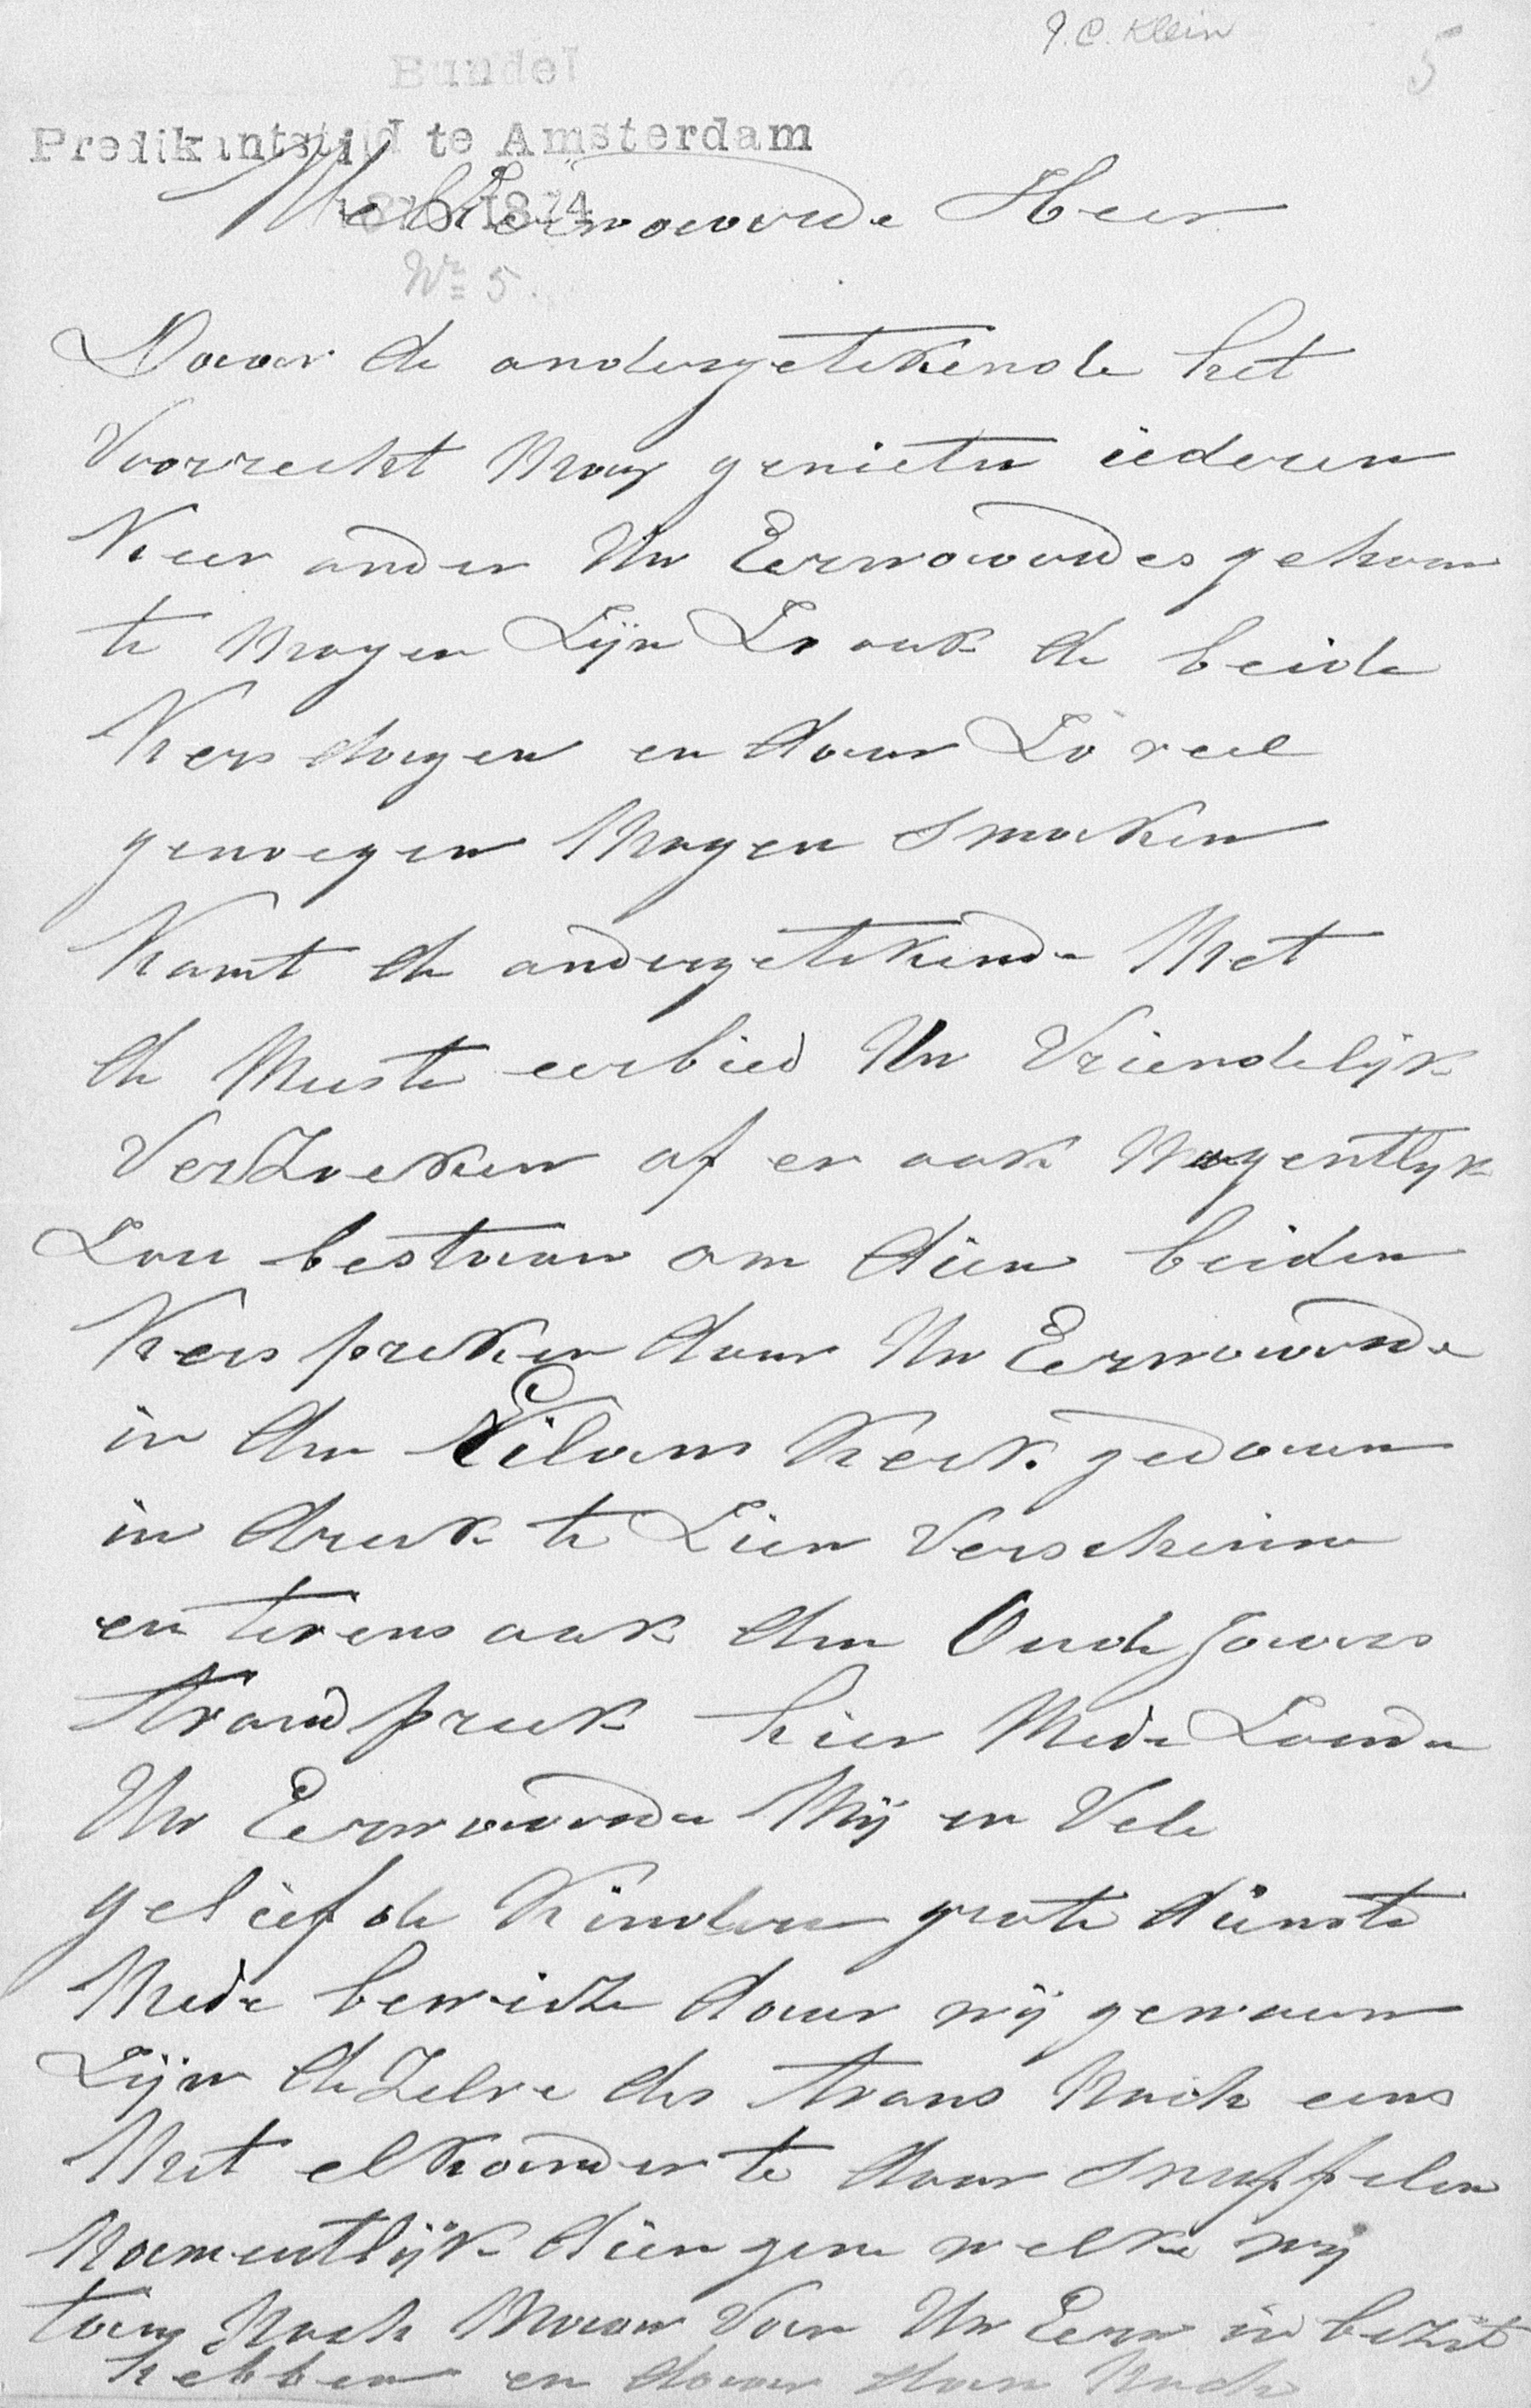 J.C. Klein
5
Bundel
Predikantstijd te Amsterdam
1870-1874
Wel Eerwaarde Heer
Nr 5.
Daar de ondergetekende het
Voorrecht Mag genieten iederen
Keer onder Uw Eerwaardes gehoor
te Mogen Zijn Zo ook de beide
Kersdagen en daar Zo veel
genoegen Mogen smaken
Komt de ondergetekende Met
de Meeste eerbied Uw Vriendelijk
VerZoeken of er ook Mogentlyk
Zou bestaan om dien beiden
Kers preken door Uw Eerwaarde
in den Eilans Kerk gedaan
in druk te Zien Verscheinen
en tevens ook den Oude Jaars
avond preek hier Mede Zoude
Uw Eerwaarde Mij en Vele
geliefde Kinderen grote dienste
Mede bewidze daar wij gewoon
Zijn deZelve des avons Noch eens
Met elkander te door snuffelen
Namentlijk diengene welke wij
Noch Maar Van Uw Eerw in bezit
hebben en daar dan Noch